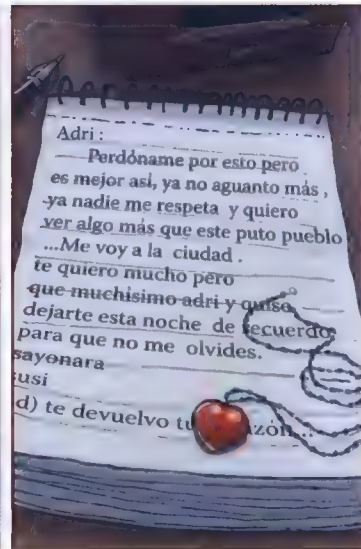 Adri :
Perdóname por esto pero
es mejor asi, ya no aguanto más ,
ya nadie me respeta y quiero
ver algo más que este puto pueblo
...Me voy a la ciudad .
te quiero mucho pero
que muchisimo adri y quise
dejarte esta noche de recuerdo
para que no me olvides.
sayonara
susi
d) te devuelvo